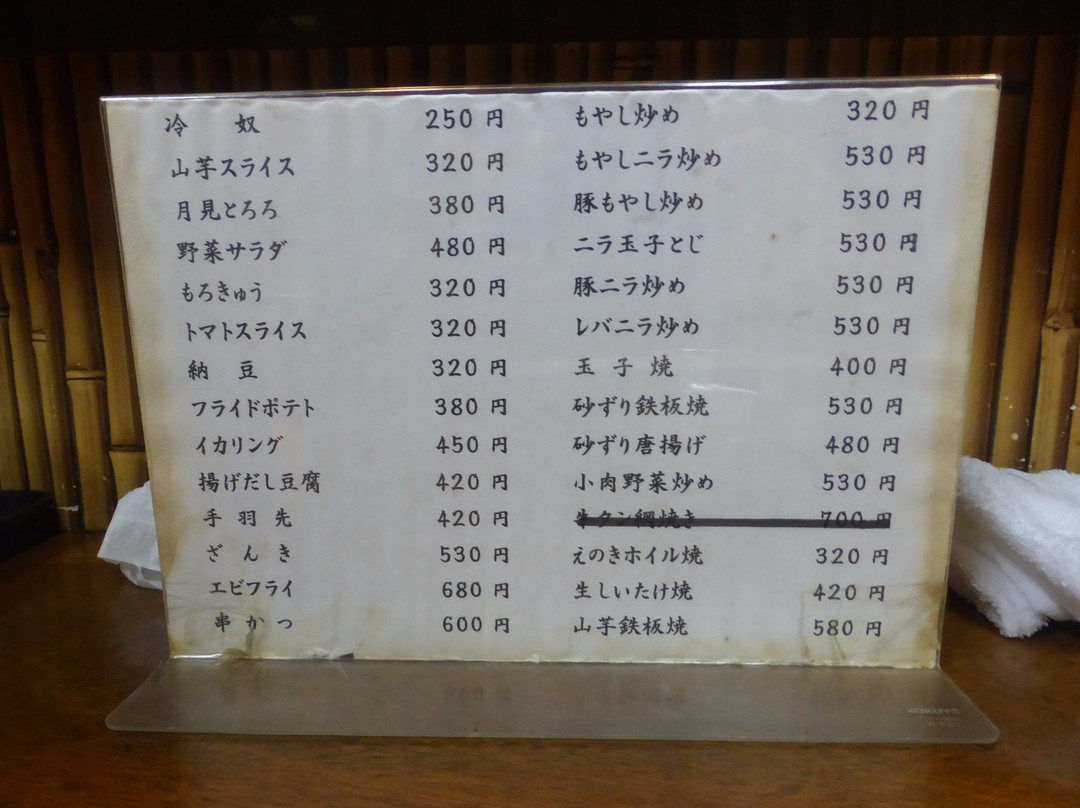 冷奴 250円
山芋スライス 320円
月見とろろ 380円
野菜サラダ 480円
もろきゅう 320円
トマトスライス 320円
納豆 320円
フライドポテト 380円
イカリング 450円
揚げだし豆腐 420円
手羽先 420円
ざんき 530円
エビフライ 680円
串かつ 600円
もやし炒め 320円
もやしニラ炒め 530円
豚もやし炒め 530円
ニラ玉子とじ 530円
豚ニラ炒め 530円
レバニラ炒め 530円
玉子焼 400円
砂ずり鉄板焼 530円
砂ずり唐揚げ 480円
小肉野菜炒め 530円
牛タン網焼き 700円
えのきホイル焼 320円
生しいたけ焼 420円
山芋鉄板焼 580円